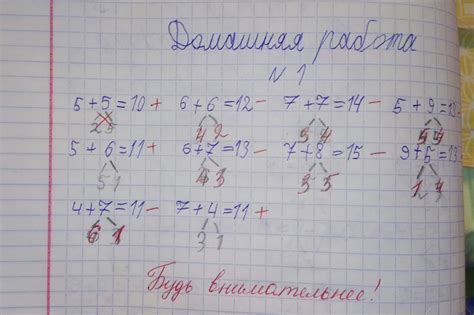 Домашняя работа
N 1
5+5=10+ 6+6=12- 7+7=14- 5+9=
4 2 3 4
5+6=11+ 6+7=13- 7+8=15-
5 1 4 3 3 5
4+7=11- 7+4=11+
6 1 3 1
Будь внимательнее!